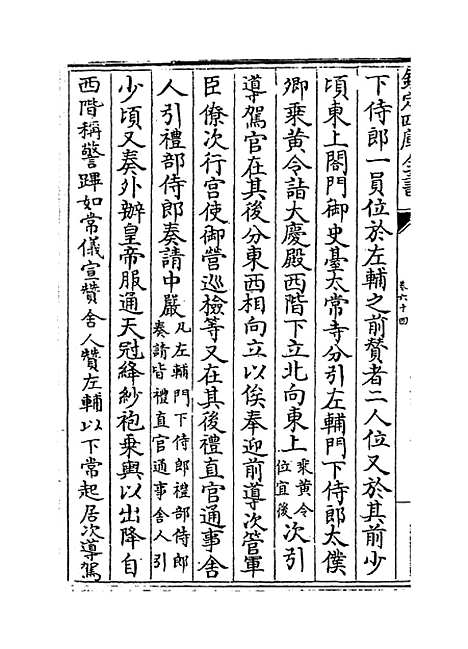 欽定四庫全書
卷六十四
下侍郎一員位於左輔之前贊者二人位又於其前少
頃東上閤門御史臺太常寺分引左輔門下侍郎太僕
卿乗黄令詣大慶殿西階下立北向東上乗黄令位宜後次引
導駕官在其後分東西相向立以俟奉迎前導次管軍
臣僚次行宫使御營巡檢等又在其後禮直官通事舍
人引禮部侍郎奏請中嚴凡左輔門下侍郎禮部侍郎奏請皆禮直官通事舍人引
少頃又奏外辦皇帝服通天冠絳紗袍乗輿以出降自
西階稱警蹕如常儀宣贊舍人贊左輔以下常起居次導駕